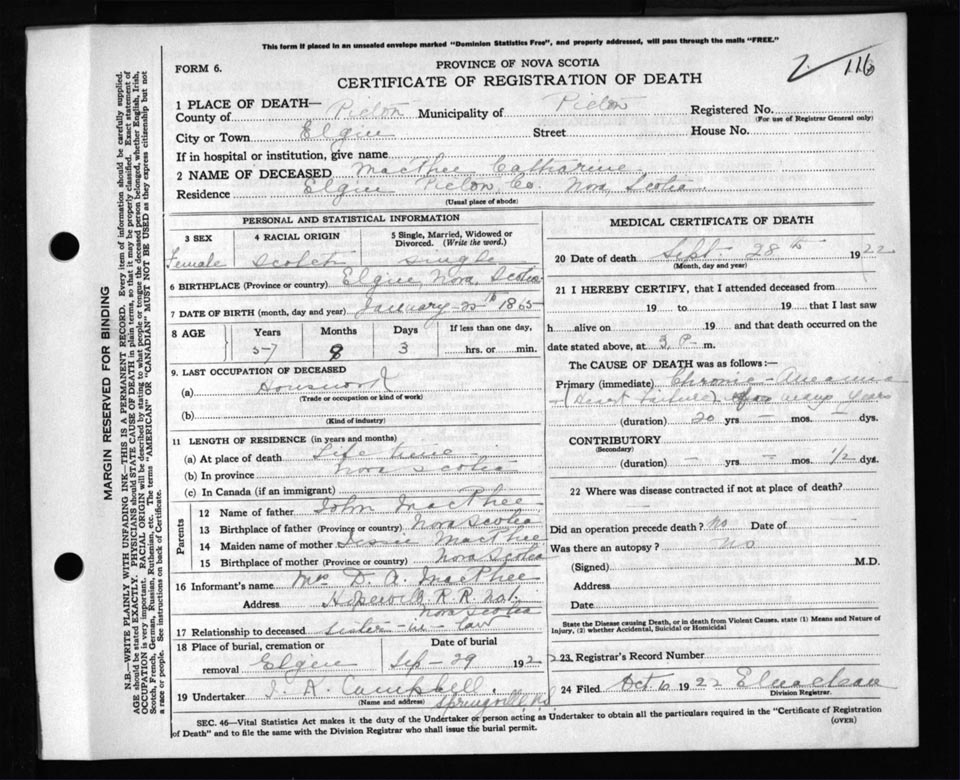 This form if placed in an unsealed envelope marked "Dominion Statistics Free", and properly addressed, will pass through the mails "FREE."
116
FORM 6.
PROVINCE OF NOVA SCOTIA
CERTIFICATE OF REGISTRATION OF DEATH
1 PLACE OF DEATH—
County of Pictou Municipality of Pictou Registered No.
(For use of Registrar General only)
City or Town Elgin Street House No.
If in hospital or institution, give name
2 NAME OF DECEASED MacPhee Catharine
Residence Elgin Pictou Co. Nova Scotia
(Usual place of abode)
PERSONAL AND STATISTICAL INFORMATION
3 SEX 4 RACIAL ORIGIN 5 Single, Married, Widowed or Divorced. (Write the word.)
Female Scotch Single
6 BIRTHPLACE (Province or country) Elgin, Nova, Scotia
7 DATE OF BIRTH (month, day and year) January 25th 1865
8 AGE Years Months Days If less than one day,
57 8 3 hrs. or min.
9. LAST OCCUPATION OF DECEASED
(a) Houswork
(Trade or occupation or kind of work)
(b)
(Kind of industry)
11 LENGTH OF RESIDENCE (in years and months)
(a) At place of death Life time
(b) In province Nova Scotia
(c) In Canada (if an immigrant)
Parents
12 Name of father John MacPhee
13 Birthplace of father (Province or country) Nova Scotia
14 Maiden name of mother Jessie MacPhee
15 Birthplace of mother (Province or country) Nova Scotia
16 Informant's name Mrs D. A. MacPhee
Address Hopewell R. R. No 1.
Nova Scotia
17 Relationship to deceased Sister-in-law
18 Place of burial, cremation or removal Elgin Date of burial Sep - 29 1922
19 Undertaker J. A. Campbell,
(Name and address) Springville N.S
MEDICAL CERTIFICATE OF DEATH
20 Date of death Sept 28th 1922
(Month, day and year)
21 I HEREBY CERTIFY, that I attended deceased from
19 to 19 that I last saw
h alive on 19 and that death occurred on
date stated above, at 3 P. m.
The CAUSE OF DEATH was as follows:—
Primary (immediate) Chronic - Anaemia
(Heart failure) for many years
(duration) 20 yrs – mos. – dys.
CONTRIBUTORY
(Secondary)
(duration) – yrs – mos. 1/2 dys.
22 Where was disease contracted if not at place of death?
Did an operation precede death? No Date of -
Was there an autopsy? No
(Signed) M.D.
Address
Date
State the Disease causing Death, or in death from Violent Causes, state (1) Means and Nature of Injury, (2) whether Accidental, Suicidal or Homicidal
23. Registrar's Record Number
24 Filed Oct 10 1922
Division Registrar.
SEC. 46—Vital Statistics Act makes it the duty of the Undertaker or person acting as Undertaker to obtain all the particulars required in the "Certificate of Registration
of Death" and to file the same with the Division Registrar who shall issue the burial permit.
(OVER)
MARGIN RESERVED FOR BINDING
N.B.—WRITE PLAINLY WITH UNFADING INK—THIS IS A PERMANENT RECORD. Every item of information should be carefully supplied.
AGE should be stated EXACTLY. PHYSICIANS should STATE CAUSE OF DEATH in plain terms, so that it may be properly classified. Exact statement of
OCCUPATION is very important. RACIAL ORIGIN will be described by stating to what people or tongue the deceased person belonged, whether English, Irish,
Scotch, French, German, Russian, Ruthenian, etc. The terms "AMERICAN" OR "CANADIAN" MUST NOT BE USED as they express citizenship but not
a race or people. See instructions on back of Certificate.